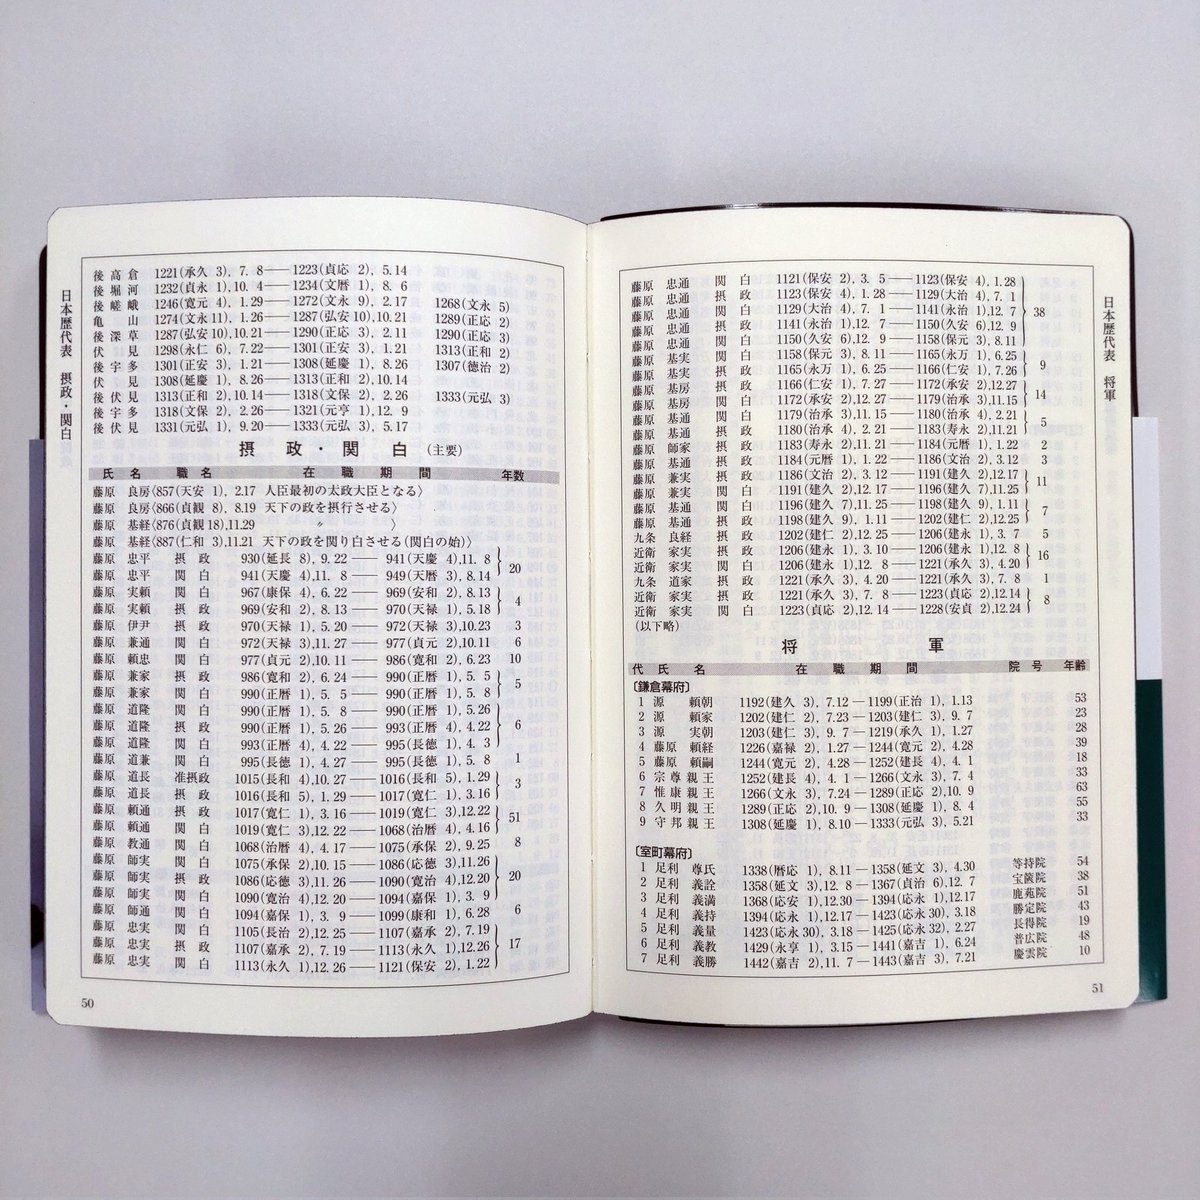 日本歴代表 摂政・関白
後高倉 1221(承久 3), 7. 8――1223(貞応 2), 5.14
後堀河 1232(貞永 1),10. 4――1234(文暦 1), 8. 6
後嵯峨 1246(寛元 4), 1.29――1272(文永 9), 2.17 1268(文永 5)
亀山 1274(文永11), 1.26――1287(弘安10),10.21 1289(正応 2)
後深草 1287(弘安10),10.21――1290(正応 3), 2.11 1290(正応 3)
伏見 1298(永仁 6), 7.22――1301(正安 3), 1.21 1313(正和 2)
後宇多 1301(正安 3), 1.21――1308(延慶 1), 8.26 1307(徳治 2)
伏見 1308(延慶 1), 8.26――1313(正和 2),10.14
後伏見 1313(正和 2),10.14――1318(文保 2), 2.26 1333(元弘 3)
後宇多 1318(文保 2), 2.26――1321(元亨 1),12. 9
後伏見 1331(元弘 1), 9.20――1333(元弘 3), 5.17
摂政・関白(主要)
氏名 職名 在職期間 年数
藤原 良房〈857(天安 1), 2.17 人臣最初の太政大臣となる〉
藤原 良房〈866(貞観 8), 8.19 天下の政を摂行させる〉
藤原 基経〈876(貞観18),11.29 〃 〉
藤原 基経〈887(仁和 3),11.21 天下の政を関り白させる(関白の始)〉
藤原 忠平 摂政 930(延長 8), 9.22―― 941(天慶 4),11. 8
藤原 忠平 関白 941(天慶 4),11. 8―― 949(天暦 3), 8.14 20
藤原 実頼 関白 967(康保 4), 6.22―― 969(安和 2), 8.13
藤原 実頼 摂政 969(安和 2), 8.13―― 970(天禄 1), 5.18 4
藤原 伊尹 摂政 970(天禄 1), 5.20―― 972(天禄 3),10.23 3
藤原 兼通 関白 972(天禄 3),11.27―― 977(貞元 2),10.11 6
藤原 頼忠 関白 977(貞元 2),10.11―― 986(寛和 2), 6.23 10
藤原 兼家 摂政 986(寛和 2), 6.24―― 990(正暦 1), 5. 5
藤原 兼家 関白 990(正暦 1), 5. 5―― 990(正暦 1), 5. 8 5
藤原 道隆 関白 990(正暦 1), 5. 8―― 990(正暦 1), 5.26
藤原 道隆 摂政 990(正暦 1), 5.26―― 993(正暦 4), 4.22 6
藤原 道隆 関白 993(正暦 4), 4.22―― 995(長徳 1), 4. 3
藤原 道兼 関白 995(長徳 1), 4.27―― 995(長徳 1), 5. 8 1
藤原 道長 准摂政 1015(長和 4),10.27――1016(長和 5), 1.29
藤原 道長 摂政 1016(長和 5), 1.29――1017(寛仁 1), 3.16 3
藤原 頼通 摂政 1017(寛仁 1), 3.16――1019(寛仁 3),12.22
藤原 頼通 関白 1019(寛仁 3),12.22――1068(治暦 4), 4.16 51
藤原 教通 関白 1068(治暦 4), 4.17――1075(承保 2), 9.25 8
藤原 師実 関白 1075(承保 2),10.15――1086(応徳 3),11.26
藤原 師実 摂政 1086(応徳 3),11.26――1090(寛治 4),12.20 20
藤原 師実 関白 1090(寛治 4),12.20――1094(嘉保 1), 3. 9
藤原 師通 関白 1094(嘉保 1), 3. 9――1099(康和 1), 6.28 6
藤原 忠実 関白 1105(長治 2),12.25――1107(嘉承 2), 7.19
藤原 忠実 摂政 1107(嘉承 2), 7.19――1113(永久 1),12.26 17
藤原 忠実 関白 1113(永久 1),12.26――1121(保安 2), 1.22
50
日本歴代表 将軍
藤原 忠通 関白 1121(保安 2), 3. 5――1123(保安 4), 1.28
藤原 忠通 摂政 1123(保安 4), 1.28――1129(大治 4), 7. 1
藤原 忠通 関白 1129(大治 4), 7. 1――1141(永治 1),12. 7 38
藤原 忠通 摂政 1141(永治 1),12. 7――1150(久安 6),12. 9
藤原 忠通 関白 1150(久安 6),12. 9――1158(保元 3), 8.11
藤原 基実 関白 1158(保元 3), 8.11――1165(永万 1), 6.25
藤原 基実 摂政 1165(永万 1), 6.25――1166(仁安 1), 7.26 9
藤原 基房 摂政 1166(仁安 1), 7.27――1172(承安 2),12.27
藤原 基房 関白 1172(承安 2),12.27――1179(治承 3),11.15 14
藤原 基通 関白 1179(治承 3),11.15――1180(治承 4), 2.21
藤原 基通 摂政 1180(治承 4), 2.21――1183(寿永 2),11.21 5
藤原 師家 摂政 1183(寿永 2),11.21――1184(元暦 1), 1.22 2
藤原 基通 摂政 1184(元暦 1), 1.22――1186(文治 2), 3.12 3
藤原 兼実 摂政 1186(文治 2), 3.12――1191(建久 2),12.17
藤原 兼実 関白 1191(建久 2),12.17――1196(建久 7),11.25 11
藤原 基通 関白 1196(建久 7),11.25――1198(建久 9), 1.11
藤原 基通 摂政 1198(建久 9), 1.11――1202(建仁 2),12.25 7
九条 良経 摂政 1202(建仁 2),12.25――1206(建永 1), 3. 7 5
近衛 家実 摂政 1206(建永 1), 3.10――1206(建永 1),12. 8
近衛 家実 関白 1206(建永 1),12. 8――1221(承久 3), 4.20 16
九条 道家 摂政 1221(承久 3), 4.20――1221(承久 3), 7. 8 1
近衛 家実 摂政 1221(承久 3), 7. 8――1223(貞応 2),12.14
近衛 家実 関白 1223(貞応 2),12.14――1228(安貞 2),12.24 8
(以下略)
将軍
代 氏名 在職期間 院号 年齢
〔鎌倉幕府〕
1 源 頼朝 1192(建久 3), 7.12―1199(正治 1), 1.13 53
2 源 頼家 1202(建仁 2), 7.23―1203(建仁 3), 9. 7 23
3 源 実朝 1203(建仁 3), 9. 7―1219(承久 1), 1.27 28
4 藤原 頼経 1226(嘉禄 2), 1.27―1244(寛元 2), 4.28 39
5 藤原 頼嗣 1244(寛元 2), 4.28―1252(建長 4), 4. 1 18
6 宗尊親王 1252(建長 4), 4. 1―1266(文永 3), 7. 4 33
7 惟康親王 1266(文永 3), 7.24―1289(正応 2),10. 9 63
8 久明親王 1289(正応 2),10. 9―1308(延慶 1), 8. 4 55
9 守邦親王 1308(延慶 1), 8.10―1333(元弘 3), 5.21 33
〔室町幕府〕
1 足利 尊氏 1338(暦応 1), 8.11―1358(延文 3), 4.30 等持院 54
2 足利 義詮 1358(延文 3),12. 8―1367(貞治 6),12. 7 宝篋院 38
3 足利 義満 1368(応安 1),12.30―1394(応永 1),12.17 鹿苑院 51
4 足利 義持 1394(応永 1),12.17―1423(応永30), 3.18 勝定院 43
5 足利 義量 1423(応永30), 3.18―1425(応永32), 2.27 長得院 19
6 足利 義教 1429(永亨 1), 3.15―1441(嘉吉 1), 6.24 普広院 48
7 足利 義勝 1442(嘉吉 2),11. 7―1443(嘉吉 3), 7.21 慶雲院 10
51